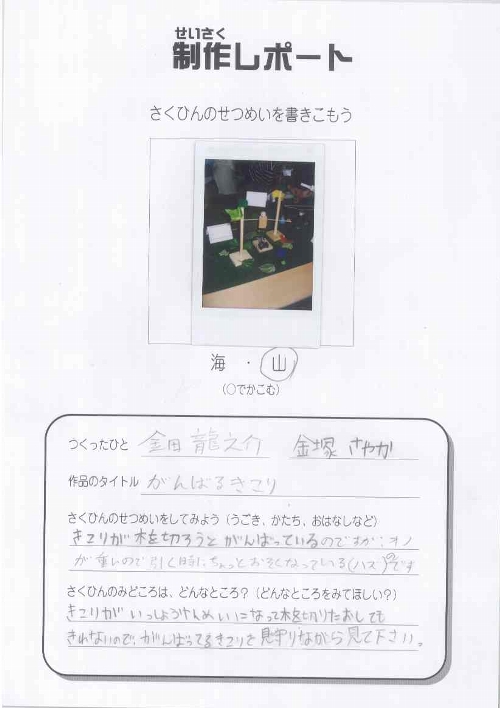 せいさく
制作レポート
さくひんのせつめいを書きこもう
海 ・ 山
(○でかこむ)
つくったひと 金田 龍之介 金塚 さやか
作品のタイトル がんばるきこり
さくひんのせつめいをしてみよう(うごき、かたち、おはなしなど)
きこりが木を切ろうとがんばっているのですが、オノ
が重いので引く時にちょっとおそくなっている(ハズ)のです
さくひんのみどころは、どんなところ?(どんなところをみてほしい?)
きこりがいっしょうけんめいになって木を切りたおしても
きれないので、がんばってるきこりを見守りながら見て下さい。